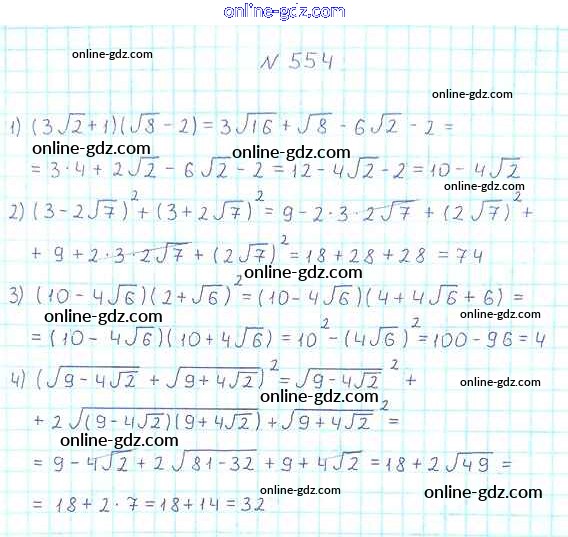 online-gdz.com
online-gdz.com
N 554
online-gdz.com
1) (3√2+1)(√8-2) = 3√16 + √8 - 6√2 - 2 =
online-gdz.com online-gdz.com
= 3·4 + 2√2 - 6√2 - 2 = 12 - 4√2 - 2 = 10 - 4√2
online-gdz.com
2) (3-2√7)² + (3+2√7)² = 9 - 2·3·2√7 + (2√7)² +
online-gdz.com
+ 9 + 2·3·2√7 + (2√7)² = 18 + 28 + 28 = 74
online-gdz.com
3) (10-4√6)(2+√6)² = (10-4√6)(4+4√6+6) =
online-gdz.com online-gdz.com
= (10-4√6)(10+4√6) = 10² - (4√6)² = 100 - 96 = 4
online-gdz.com
4) (√(9-4√2) + √(9+4√2))² = √(9-4√2)² +
online-gdz.com
+ 2√((9-4√2)(9+4√2)) + √(9+4√2)² =
online-gdz.com
= 9 - 4√2 + 2√(81-32) + 9 + 4√2 = 18 + 2√49 =
online-gdz.com online-gdz.com
= 18 + 2·7 = 18 + 14 = 32
online-gdz.com